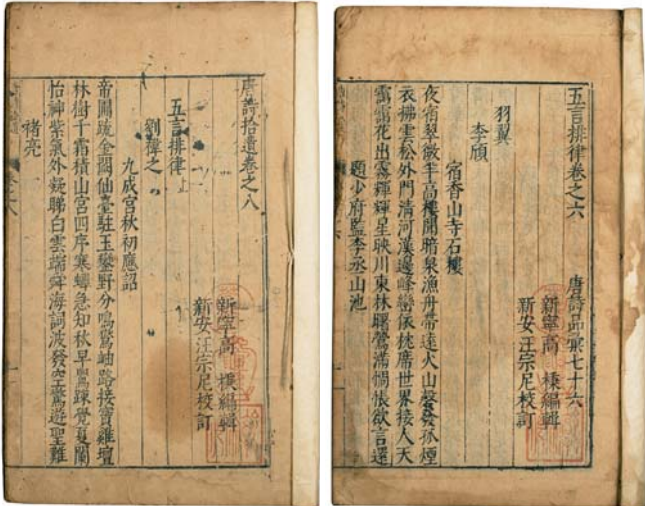 五言排律卷之六 唐詩品彙七十六
新寧高 棅編輯
新安汪宗尼校訂
羽翼
李頎
宿香山寺石樓
夜宿翠微半高樓聞暗泉漁舟帶遠火山磬發孤煙
衣拂雲松外門清河漢邊峰巒低枕席世界接人天
靄靄花出霧輝輝星映川東林曙鶯滿惆悵欲言還
題少府監李丞山池
唐詩拾遺卷之八
新寧高 棅編輯
新安汪宗尼校訂
五言排律上
劉禕之
九成宮秋初應詔
帝圃疏金闕仙臺駐玉鑾野分鳴鷟岫路接寶雞壇
林樹千霜積山宮四序寒蟬急知秋早鶯疎覺夏闌
怡神紫氣外凝睇白雲端舜海詞波發空驚遊聖難
褚亮